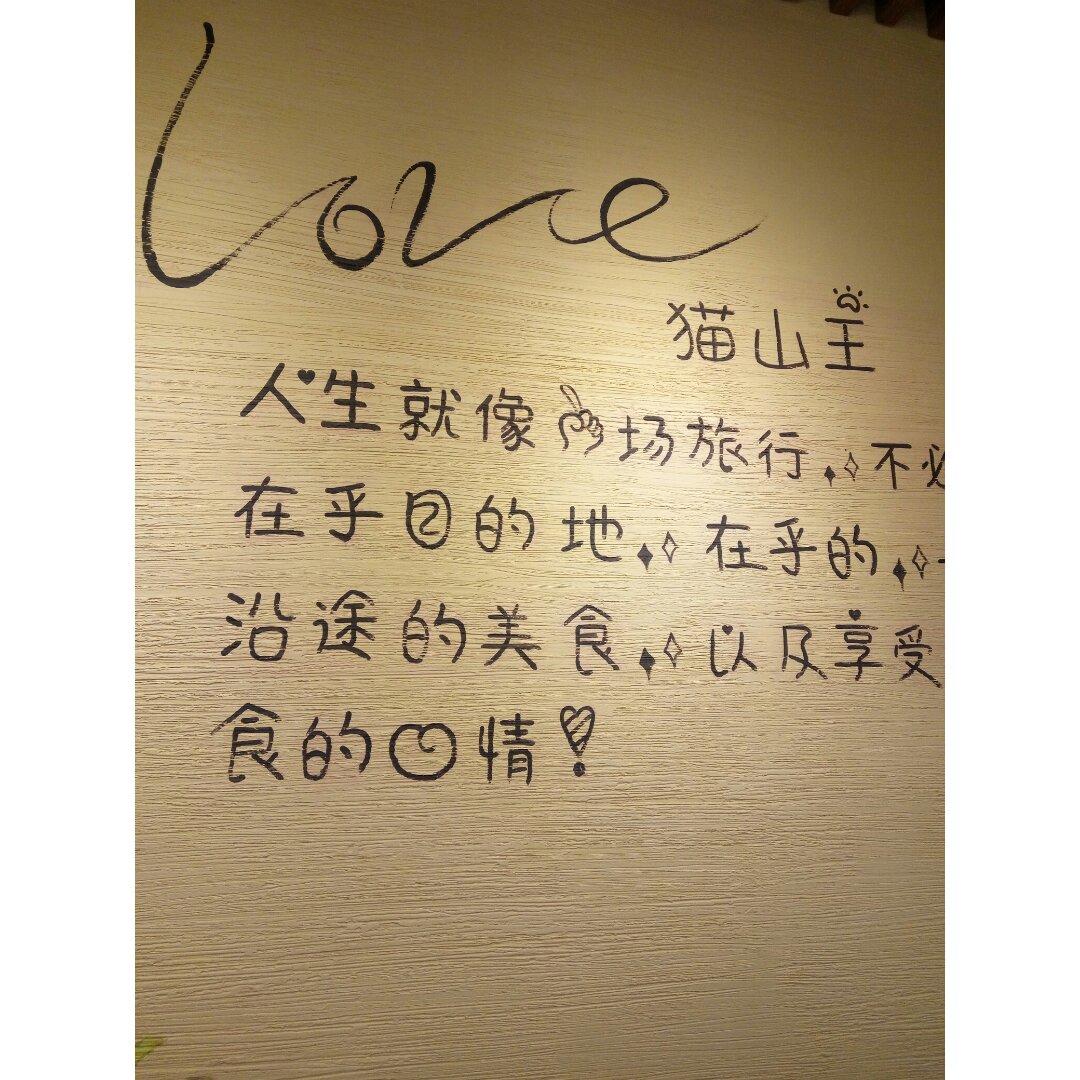 Love
猫山王
人生就像场旅行，不必
在乎目的地，在乎的，
沿途的美食，以及享受
食的心情！